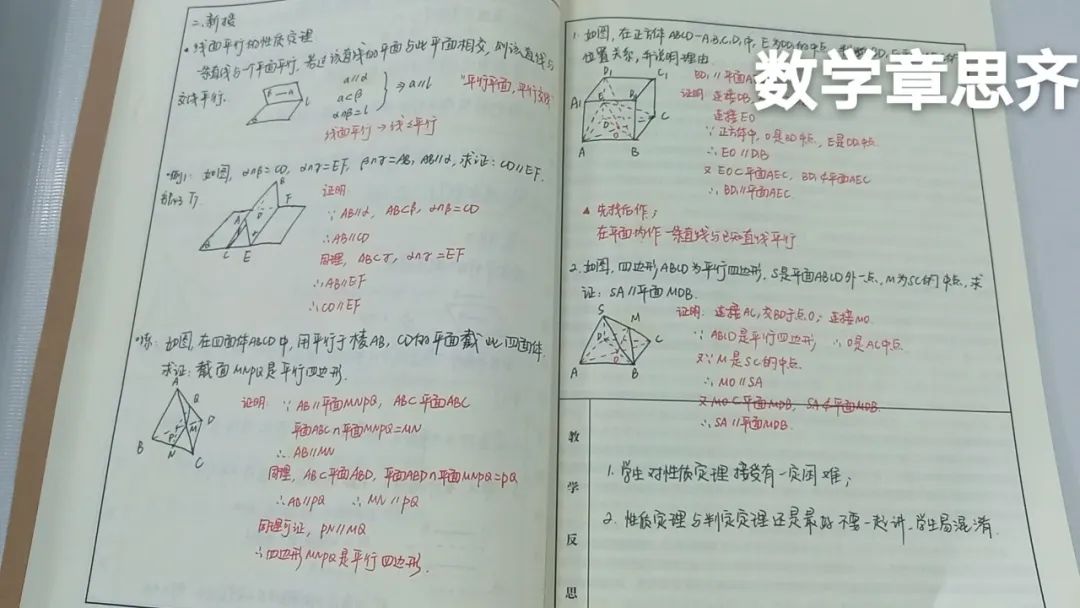 二、新授
• 线面平行的性质定理
一条直线与一个平面平行,若过该直线的平面与此平面相交,则该直线与
交线平行.
a∥α
a⊂β
α∩β=l
⇒ a∥l
"平行平面,平行交线
线面平行 → 线线平行
•例1: 如图, α∩β=CD, α∩γ=EF, β∩γ=AB, AB∥α, 求证: CD∥EF.
证明:
∵ AB∥α, AB⊂β, α∩β=CD
∴AB∥CD
同理, AB⊂γ, α∩γ=EF
∴AB∥EF
∴CD∥EF
•练: 如图,在四面体ABCD中,用平行于棱AB, CD的平面截此四面体.
求证: 截面MNPQ是平行四边形.
证明: ∵ AB∥平面MNPQ, AB⊂平面ABC
平面ABC∩平面MNPQ=MN
∴ AB∥MN
同理, AB⊂平面ABD, 平面ABD∩平面MNPQ=PQ
∴AB∥PQ ∴ MN∥PQ
同理可证, PN∥MQ
∴四边形MNPQ是平行四边形.
1. 如图,在正方体ABCD-A₁B₁C₁D₁中, E为DD₁的中点,
位置关系,并说明理由.
BD₁∥平面A
证明: 连接DB,
连接EO
∵ 正方体中, O是BD中点, E是DD₁中点.
∴ EO∥D₁B
又 EO⊂平面AEC, BD₁⊄平面AEC
∴ BD₁∥平面AEC
▲ 先找后作;
在平面内作一条直线与已知直线平行
2. 如图, 四边形ABCD为平行四边形, S是平面ABCD外一点, M为SC的中点, 求
证: SA∥平面MDB.
证明: 连接AC, 交BD于点O; 连接MO.
∵ ABCD是平行四边形 ∴ O是AC中点.
又∵ M是SC的中点.
∴ MO∥SA
又 MO⊂平面MDB, SA⊄平面MDB.
∴ SA∥平面MDB.
教学反思
1. 学生对性质定理接受有一定困难;
2. 性质定理与判定定理还是最好不要一起讲,学生易混淆.
数学章思齐